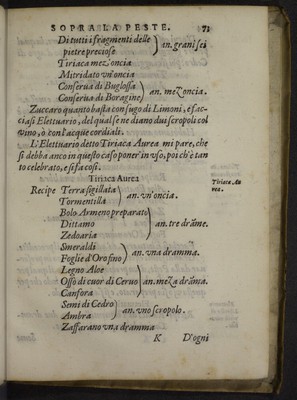 SOPRA LA PESTE. 71
Di tutti i fragmenti delle
pietre preciose } an. grani sei
Tiriaca mez'oncia
Mitridato vn'oncia
Conserua di Buglossa
Conserua di Boragine } an. mez'oncia.
Zuccaro quanto basta con sugo di Limoni. e sac-
ciasi Elettuario, del qual se ne diano dui scropoli col
vino, ò con l'acque cordiali.
L'Elettuario detto Tiriaca Aurea mi pare, che
si debba anco in questo caso poner'in vso, poi ch'è tan
to celebrato, e si fa cosi.
Tiriaca Aurea
Tiriaca Au
rea.
Recipe Terra sigillata
Tormentilla } an. vn'oncia.
Bolo Armeno preparato
Dittamo
Zedoaria } an. tre drãme.
Smeraldi
Foglie d'Oro fino } an. vna dramma.
Legno Aloe
Osso di cuor di Ceruo
Canfora } an. meza drãma.
Semi di Cedro
Ambra } an. vno scropolo.
Zaffarano vna dramma
K D'ogni